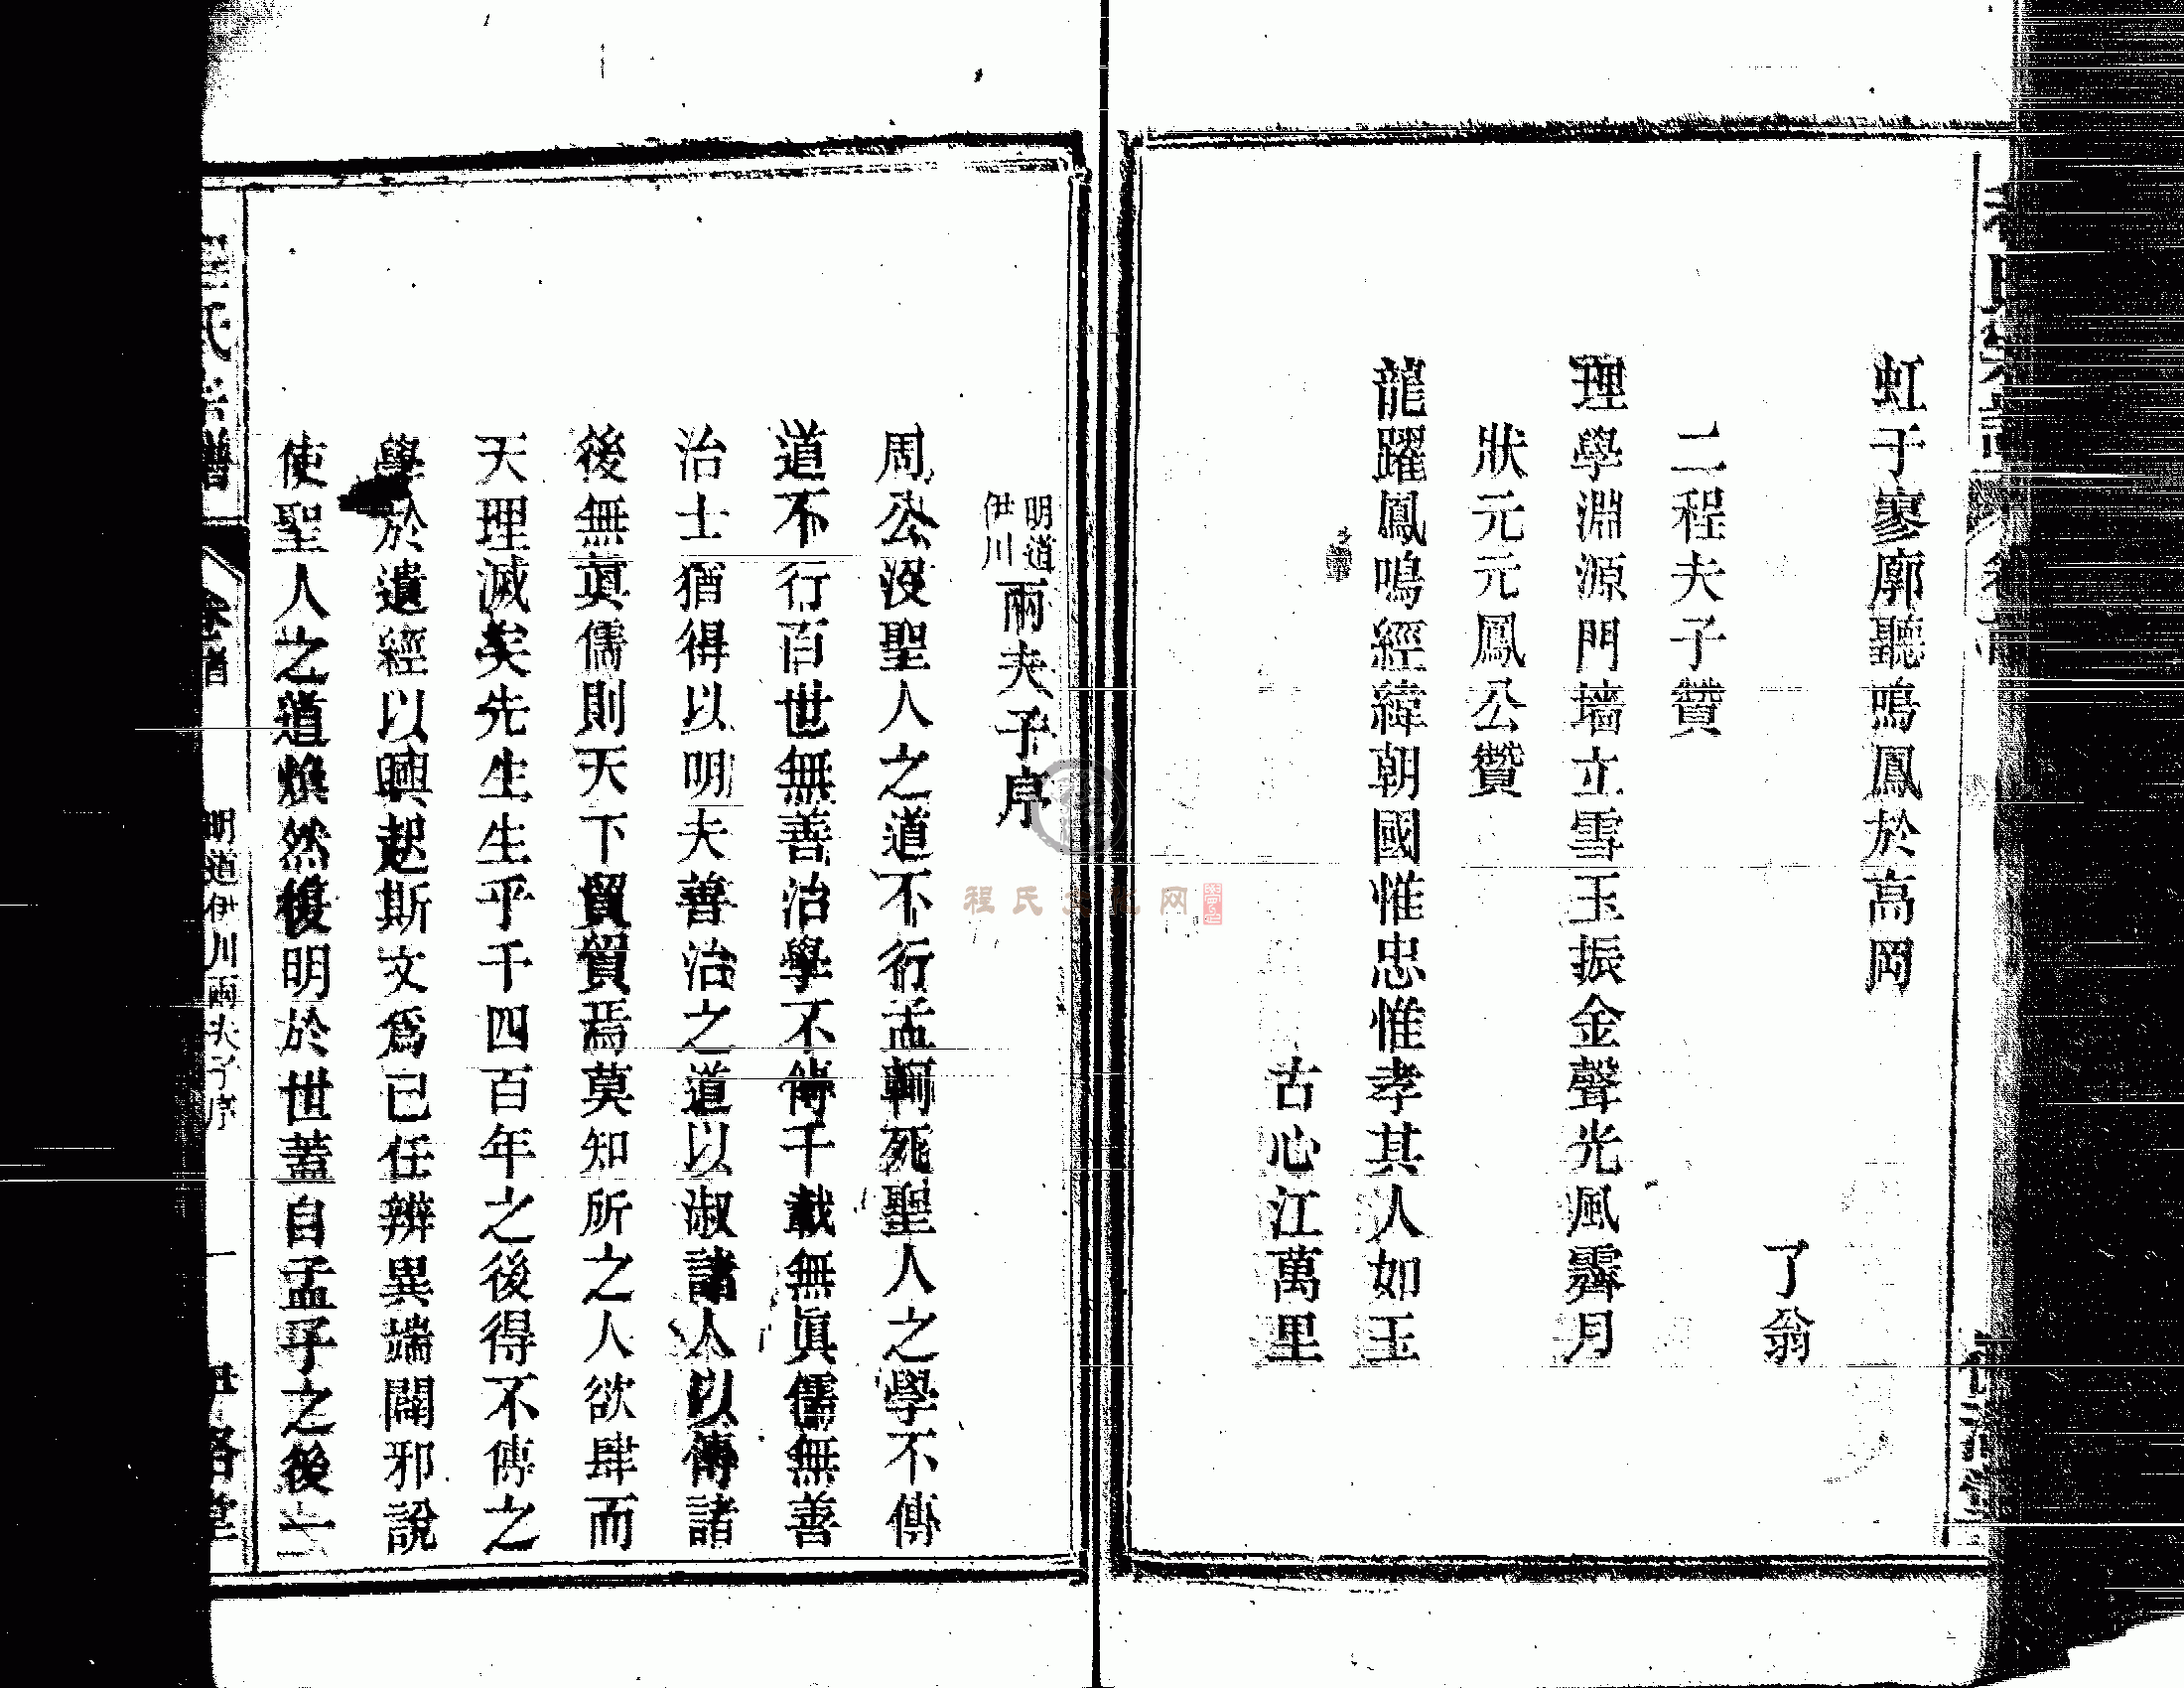 虹于寥廓聽鳴鳳於高岡
二程夫子贊
了翁
理學淵源門墻立雪玉振金聲光風霽月
狀元元鳳公贊
龍躍鳳鳴經緯朝國惟忠惟孝其人如玉
古心江萬里
明道
伊川
兩夫子序
周公沒聖人之道不行孟軻死聖人之學不傳
道不行百世無善治學不傳千載無眞儒無善
治士猶得以明夫善治之道以淑諸人以傳諸
後無眞儒則天下貿貿焉莫知所之人欲肆而
天理滅矣先生生乎千四百年之後得不傳之
學於遺經以興起斯文爲已任辨異端闢邪說
使聖人之道煥然復明於世蓋自孟子之後一
譜
卷首
明道伊川兩夫子序
一
程氏文化网